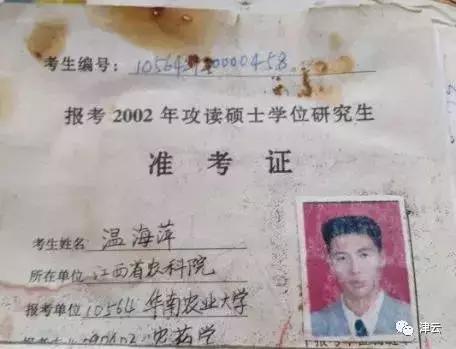 考生编号: 10564 20000458
报考 2002 年攻读硕士学位研究生
准 考 证
考生姓名 温海萍
所在单位 江西省农科院
报考单位 10564 华南农业大学
农药学
津云